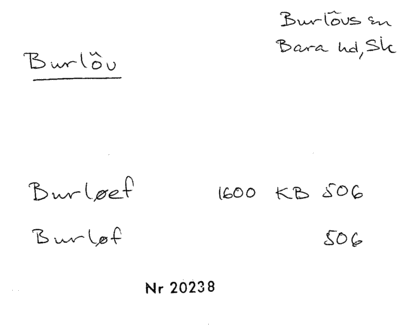 Burlöv
Burlövs sn
Bara hd, Sk
Burløef 1600 KB 506
Burløf 506
Nr 20238